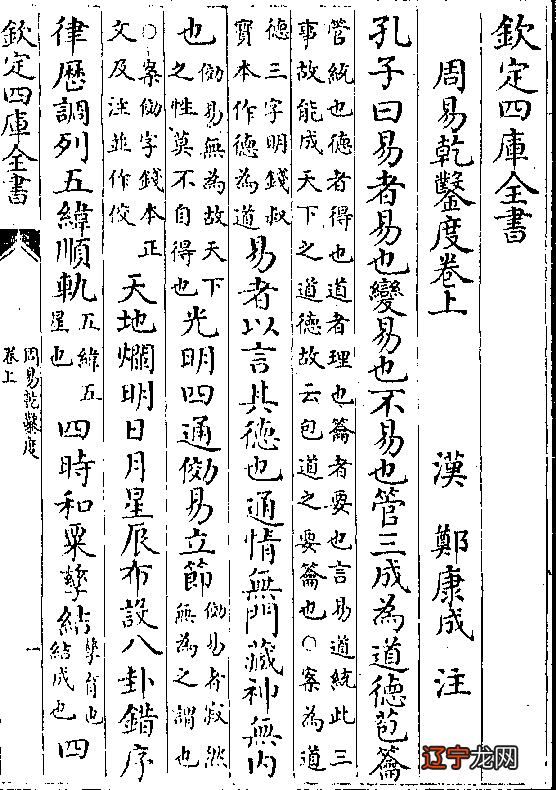 欽定四庫全書
周易乾鑿度卷上
漢 鄭康成 注
孔子曰易者易也變易也不易也管三成為道德苞籥
管統也德者得也道者理也籥者要也言易道統此三
事故能成天下之道德故云包道之要籥也○案為道
德三字明錢叔
寶本作德為道
易者以言其德也通情無門藏神無内
也
俲易無為故天下
之性莫不自得也
光明四通俲易立節
俲易者寂然
無為之謂也
○案俲字錢本正
文及注並作佼
天地爛明日月星辰布設八卦錯序
律歴調列五緯順軌
五緯五
星也
四時和粟孳結
孳育也
結成也
四
欽定四庫全書
周易乾鑿度
卷上
一
辽宁龙网